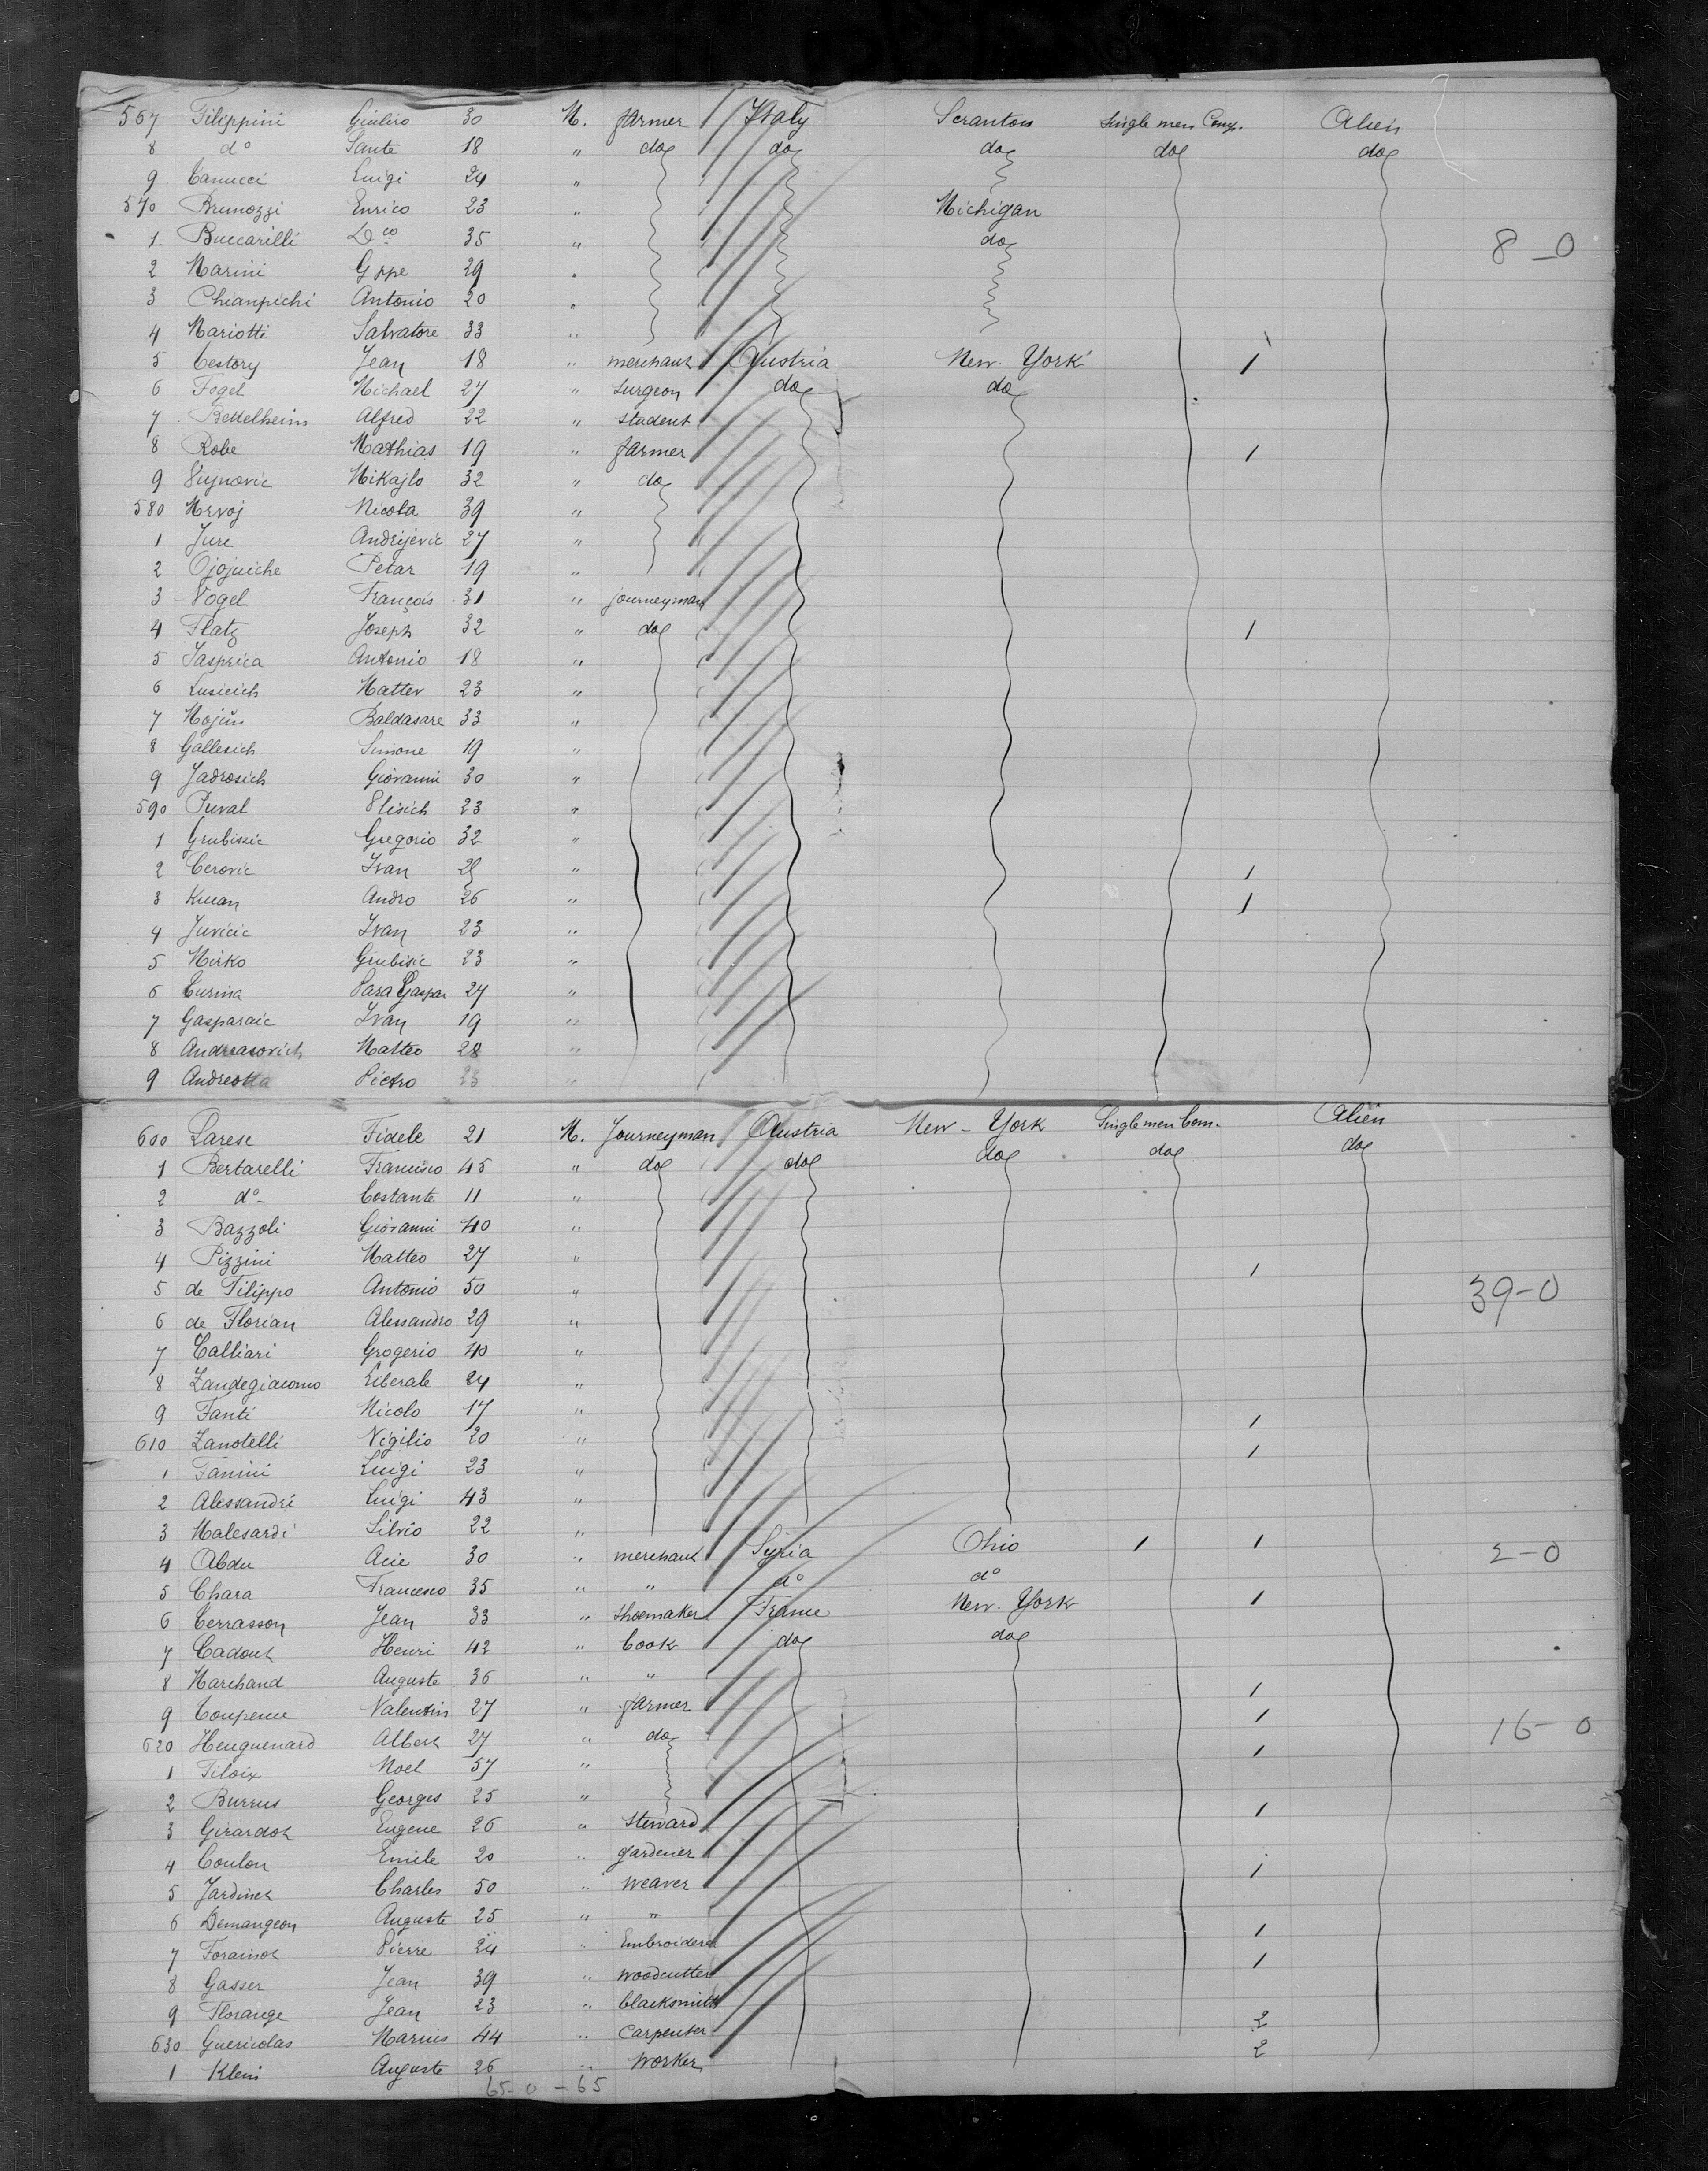 567 Filippini Giulio 30 M. farmer Italy Scranton Single men Comp. Alien
8 do Sante 18 " do do do do do
9 Canucci Luigi 24 "
570 Brunozzi Enrico 23 " Michigan
1 Buccarilli Dco 35 " do 8-0
2 Marini Gppe 29 "
3 Chianpichi Antonio 20 "
4 Mariotti Salvatore 33 "
5 Cestory Jean 18 " merchant Austria New-York 1
6 Fogel Michael 27 " surgeon do do
7 Bettelheim Alfred 22 " student
8 Robe Mathias 19 " farmer 1
9 Vujnovic Mikajlo 32 " do
580 Mrvoj Nicola 39 "
1 Jure Andrijevic 27 "
2 Ojojuiche Petar 19 "
3 Vogel François 31 " journeyman
4 Flatz Joseph 32 " do 1
5 Jasprica Antonio 18 "
6 Lusicich Matter 23 "
7 Mojus Baldasare 33 "
8 Gallesich Simone 19 "
9 Jadrosich Giovanni 30 "
590 Puval Elisich 23 "
1 Grubissic Gregorio 32 "
2 Cerovic Ivan 25 " 1
3 Kman Andro 26 " 1
4 Juricic Ivan 23 "
5 Mirko Grubisic 23 "
6 Curina Para Gaspar 27 "
7 Gasparaic Ivan 19 "
8 Andreasovich Matteo 28 "
9 Andreotta Pietro 23 "
600 Larese Fidele 21 M. Journeyman Austria New-York Single men Com. Alien
1 Bertarelli Francisco 45 " do do do do do
2 do Costante 11 "
3 Bazzoli Giovanni 40 "
4 Pizzini Matteo 27 " 1
5 de Filippo Antonio 50 " 39-0
6 de Florian Alessandro 29 "
7 Calliari Grogerio 40 "
8 Zandegiacomo Liberale 24 "
9 Fanti Nicolo 17 " 1
610 Zanotelli Vigilio 20 " 1
1 Fanini Luigi 23 "
2 Alessandri Luigi 43 "
3 Malesardi Silvio 22 "
4 Abdu Acie 30 " merchant Syria Ohio 1 1 2-0
5 Chara Francesco 35 " " do do
6 Cerrasson Jean 33 " shoemaker France New-York 1
7 Cadout Henri 42 " Cook do do
8 Marchand Auguste 36 " "
9 Coupenne Valentin 27 " farmer 1
620 Henguenard Albert 27 " do 1 16-0
1 Filoix Noel 57 " 1
2 Burrus Georges 25 "
3 Girardot Eugene 26 " steward 1
4 Coulon Emile 20 " gardener
5 Jardinet Charles 50 " weaver 1
6 Demangeon Auguste 25 " "
7 Forainot Pierre 24 " Embroiderer 1
8 Gasser Jean 39 " woodcutter 1
9 Florange Jean 23 " blacksmith
630 Guericolas Marius 44 " Carpenter 2
1 Klein Auguste 26 " Worker 2
65-0-65